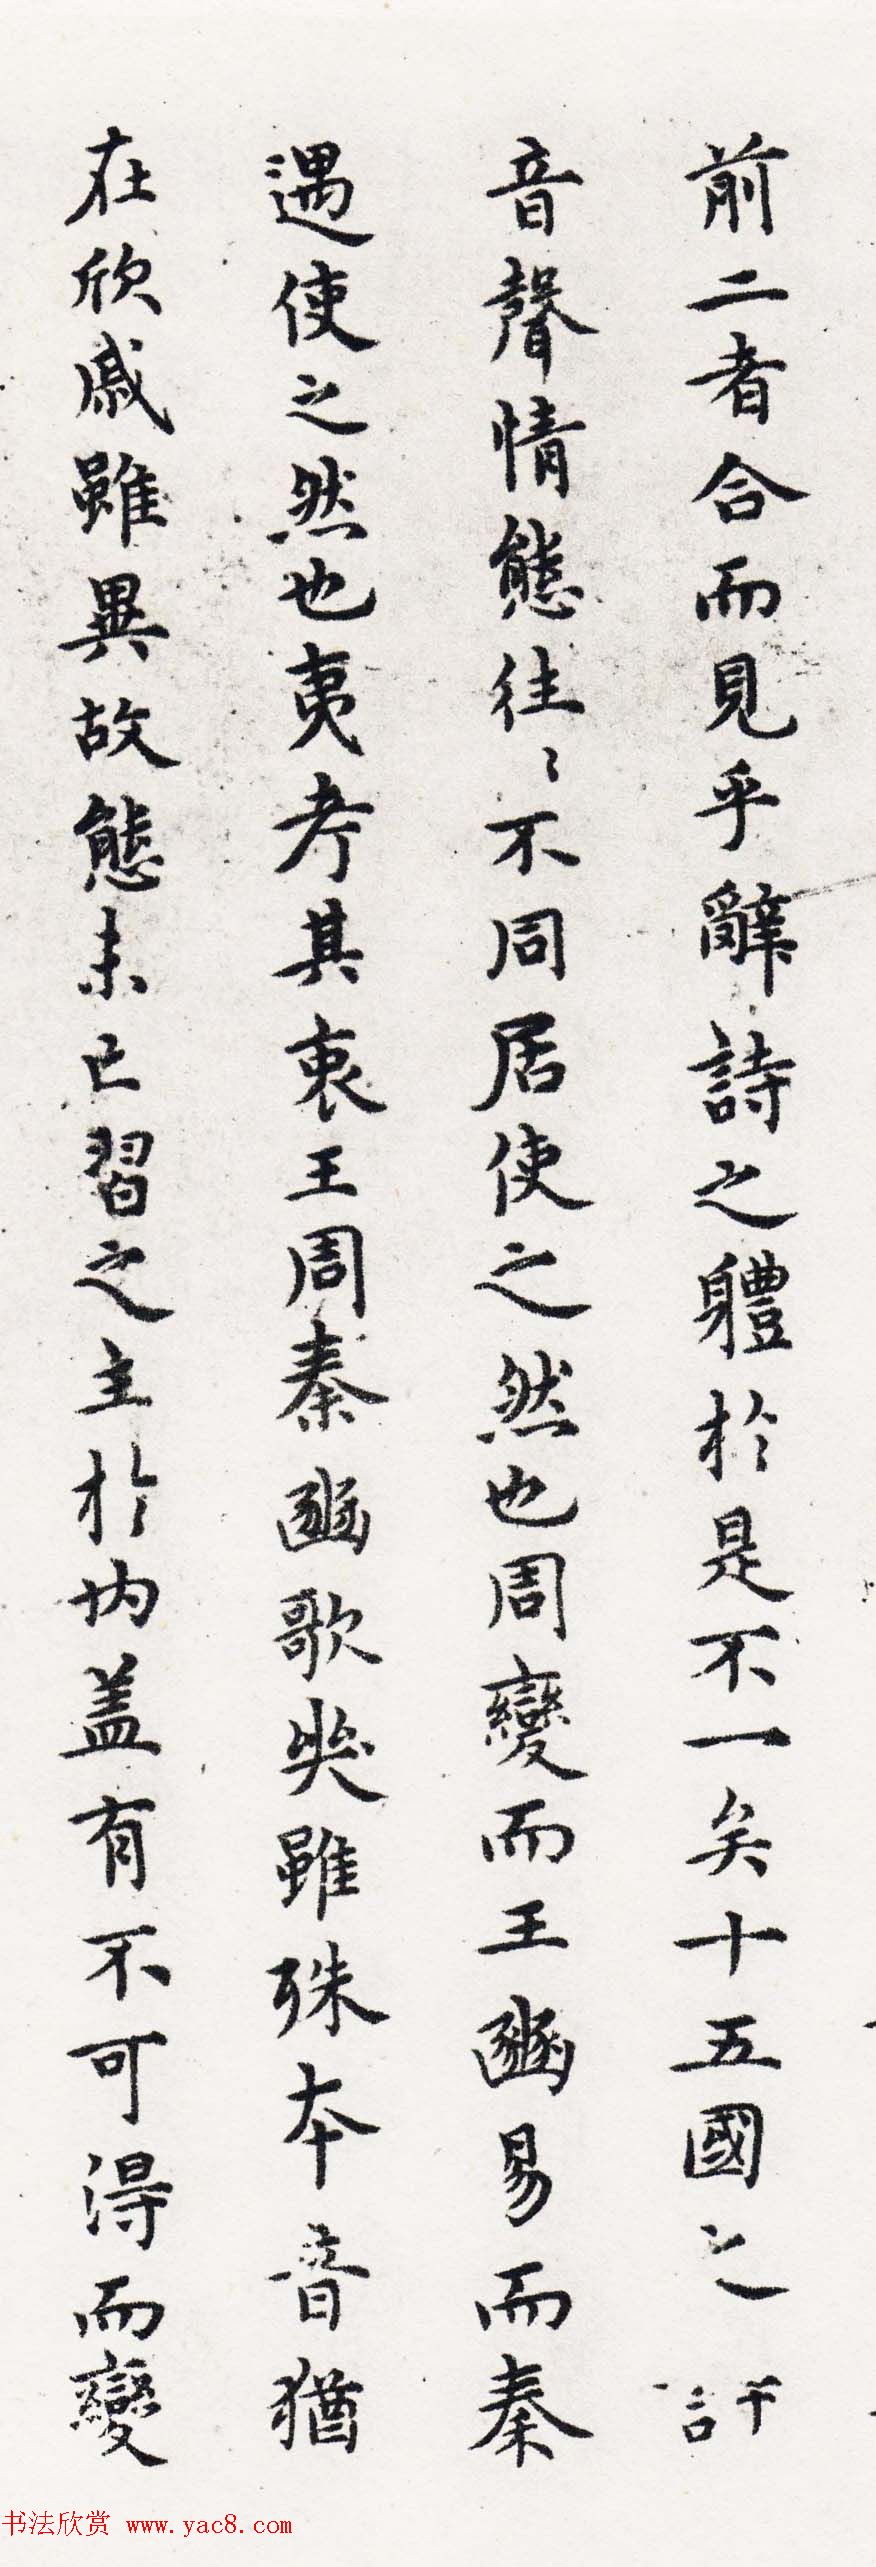 前二者合而見乎辭詩之軆於是不一矣十五國之許
音聲情態往〻不同居使之然也周變而王豳易而秦
遇使之然也夷考其衷王周秦豳歌哭雖殊本音猶
在欣戚雖異故態未亡習之主於内盖有不可得而變
书法欣赏 www.yac8.com